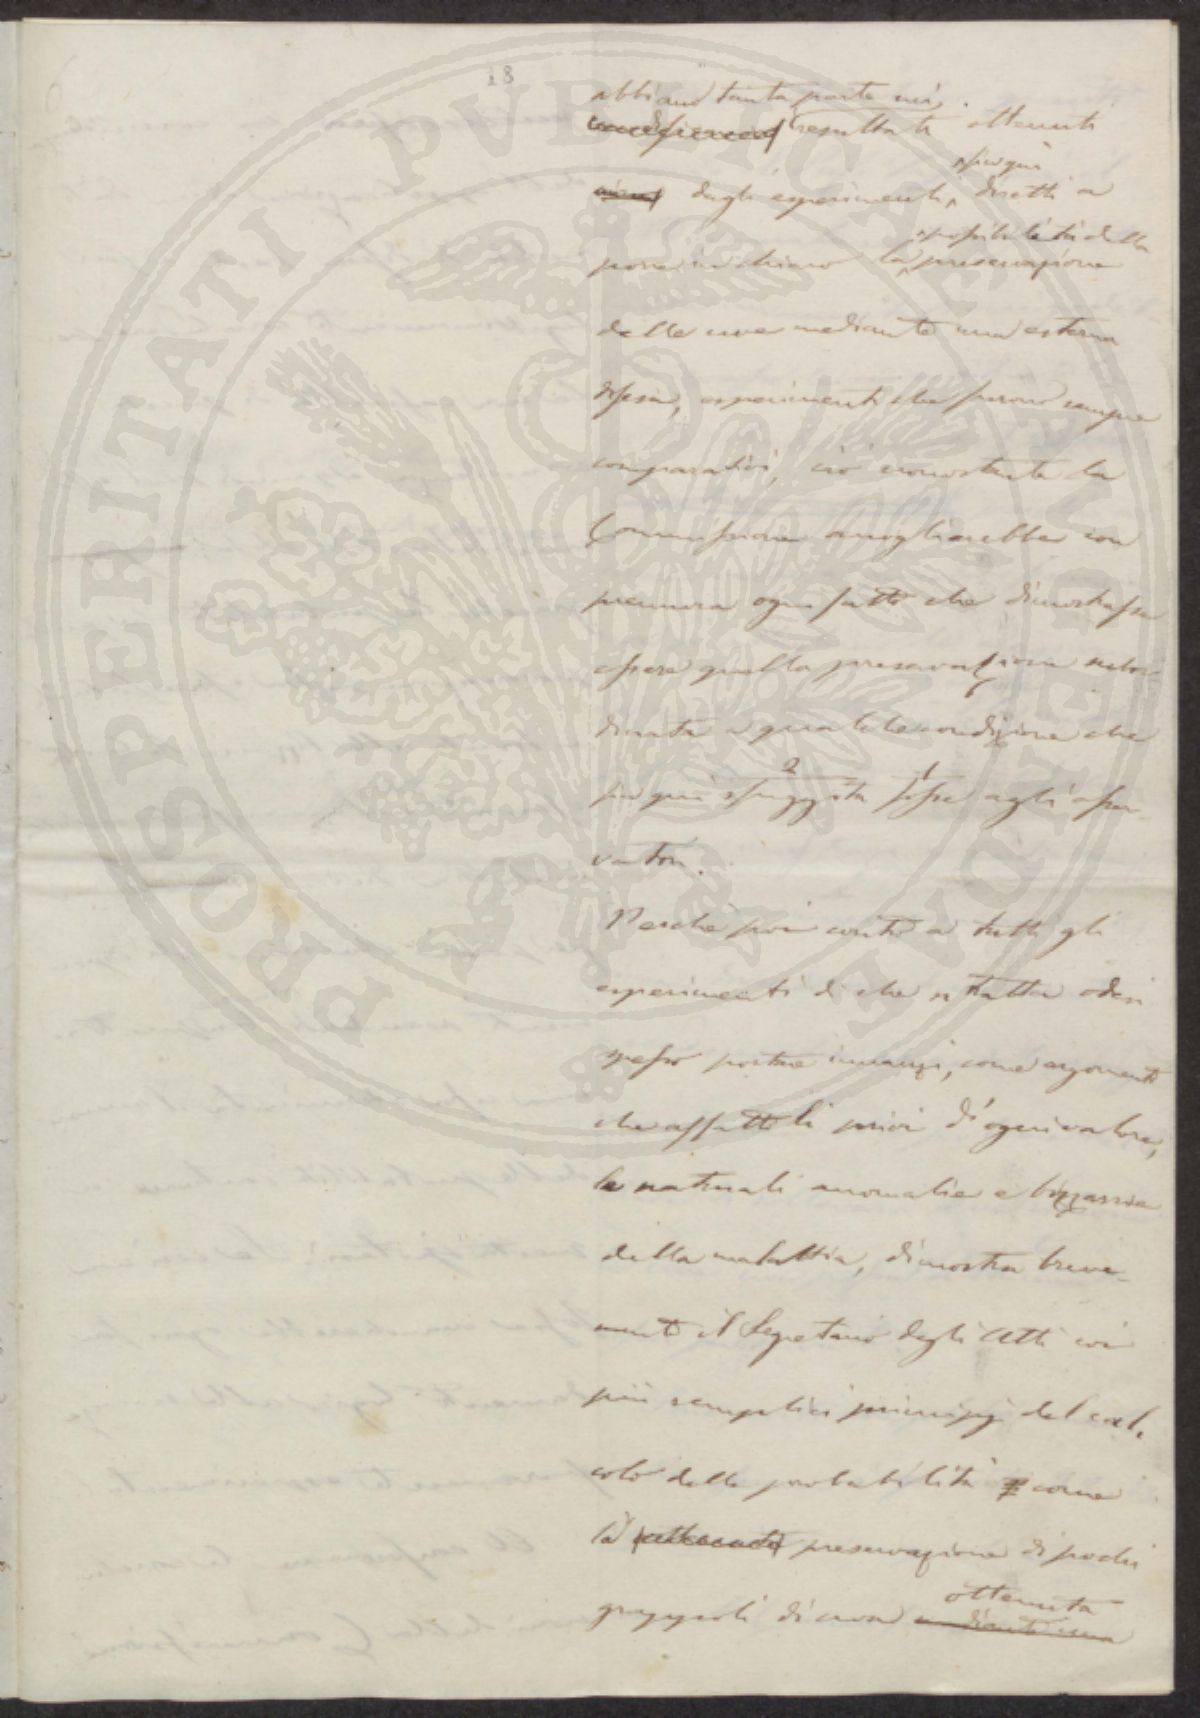 18
abbiano tanta parte nei
resultati ottenuti
dagli esperimenti, finqui diretti a
porre in chiaro la possibilità della preservazione
delle uve mediante una esterna
difesa, esperimenti che furono sempre
comparativi, ciò nonostante la
Commissione accoglierebbe con
premura ogni fatto che dimostrasse
essere quella preservazione subor-
dinata a qualche condizione che
fin qui sfuggita fosse agli osser-
vatori.
Perchè poi contro a tutti gli
esperimenti di che si tratta odesi
spesso portare innanzi, come argomento
che affatto li privi d'ogni valore,
le naturali anomalie e bizzarrie
della malattia, dimostra breve-
mente il Segretario degli Atti coi
più semplici principj del cal-
colo delle probabilità come
la preservazione di pochi
grappoli di uva ottenuta
mediante una
PROSPERITATI PVBLICAE AVGENDAE